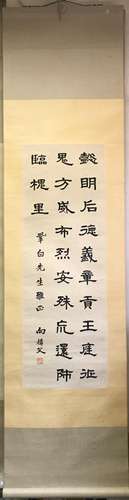 懿明后德義章貢王庭征
鬼方威布烈安殊荒還師
臨槐里
白先生雅正 向